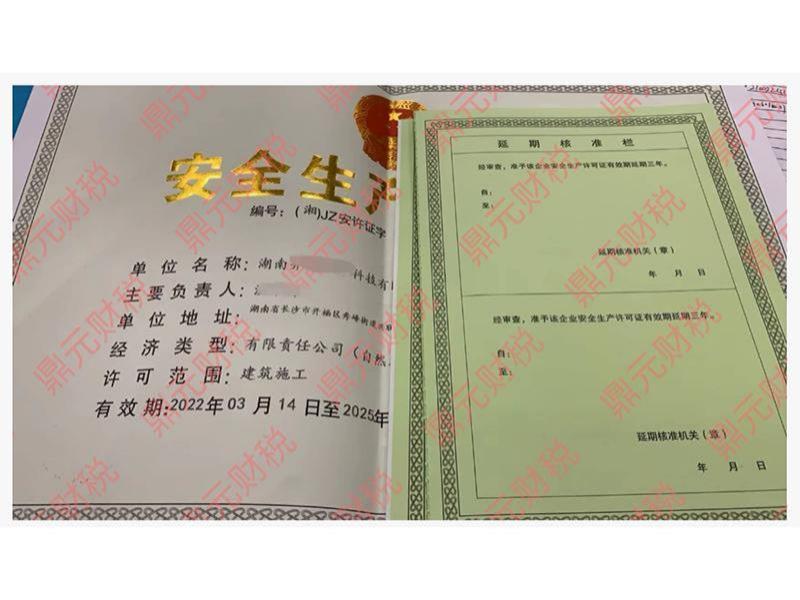 安全生产
编号：(湘)JZ安许证字
单位名称：湖南 科技有限
主要负责人：
单位地址：湖南省长沙市开福区秀峰街道
经济类型：有限责任公司（自然
许可范围：建筑施工
有效期:2022年03月14日至2025年
延期核准栏
经审查，准予该企业安全生产许可证有效期延期三年。
自：
至：
延期核准机关（章）
年 月 日
经审查，准予该企业安全生产许可证有效期延期三年。
自：
至：
延期核准机关（章）
年 月 日
鼎元财税